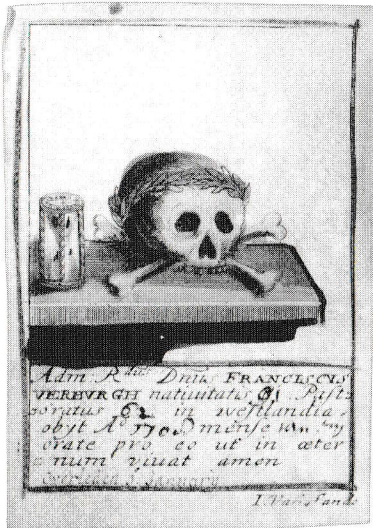 Adm R^dus Dnus FRANCISCUS
VERBVRGH nativitatis 81 Past=
oratus 62 in westlandia.
obyt A° 1708 mense
orate pro eo ut in æter
num vivat amen
January